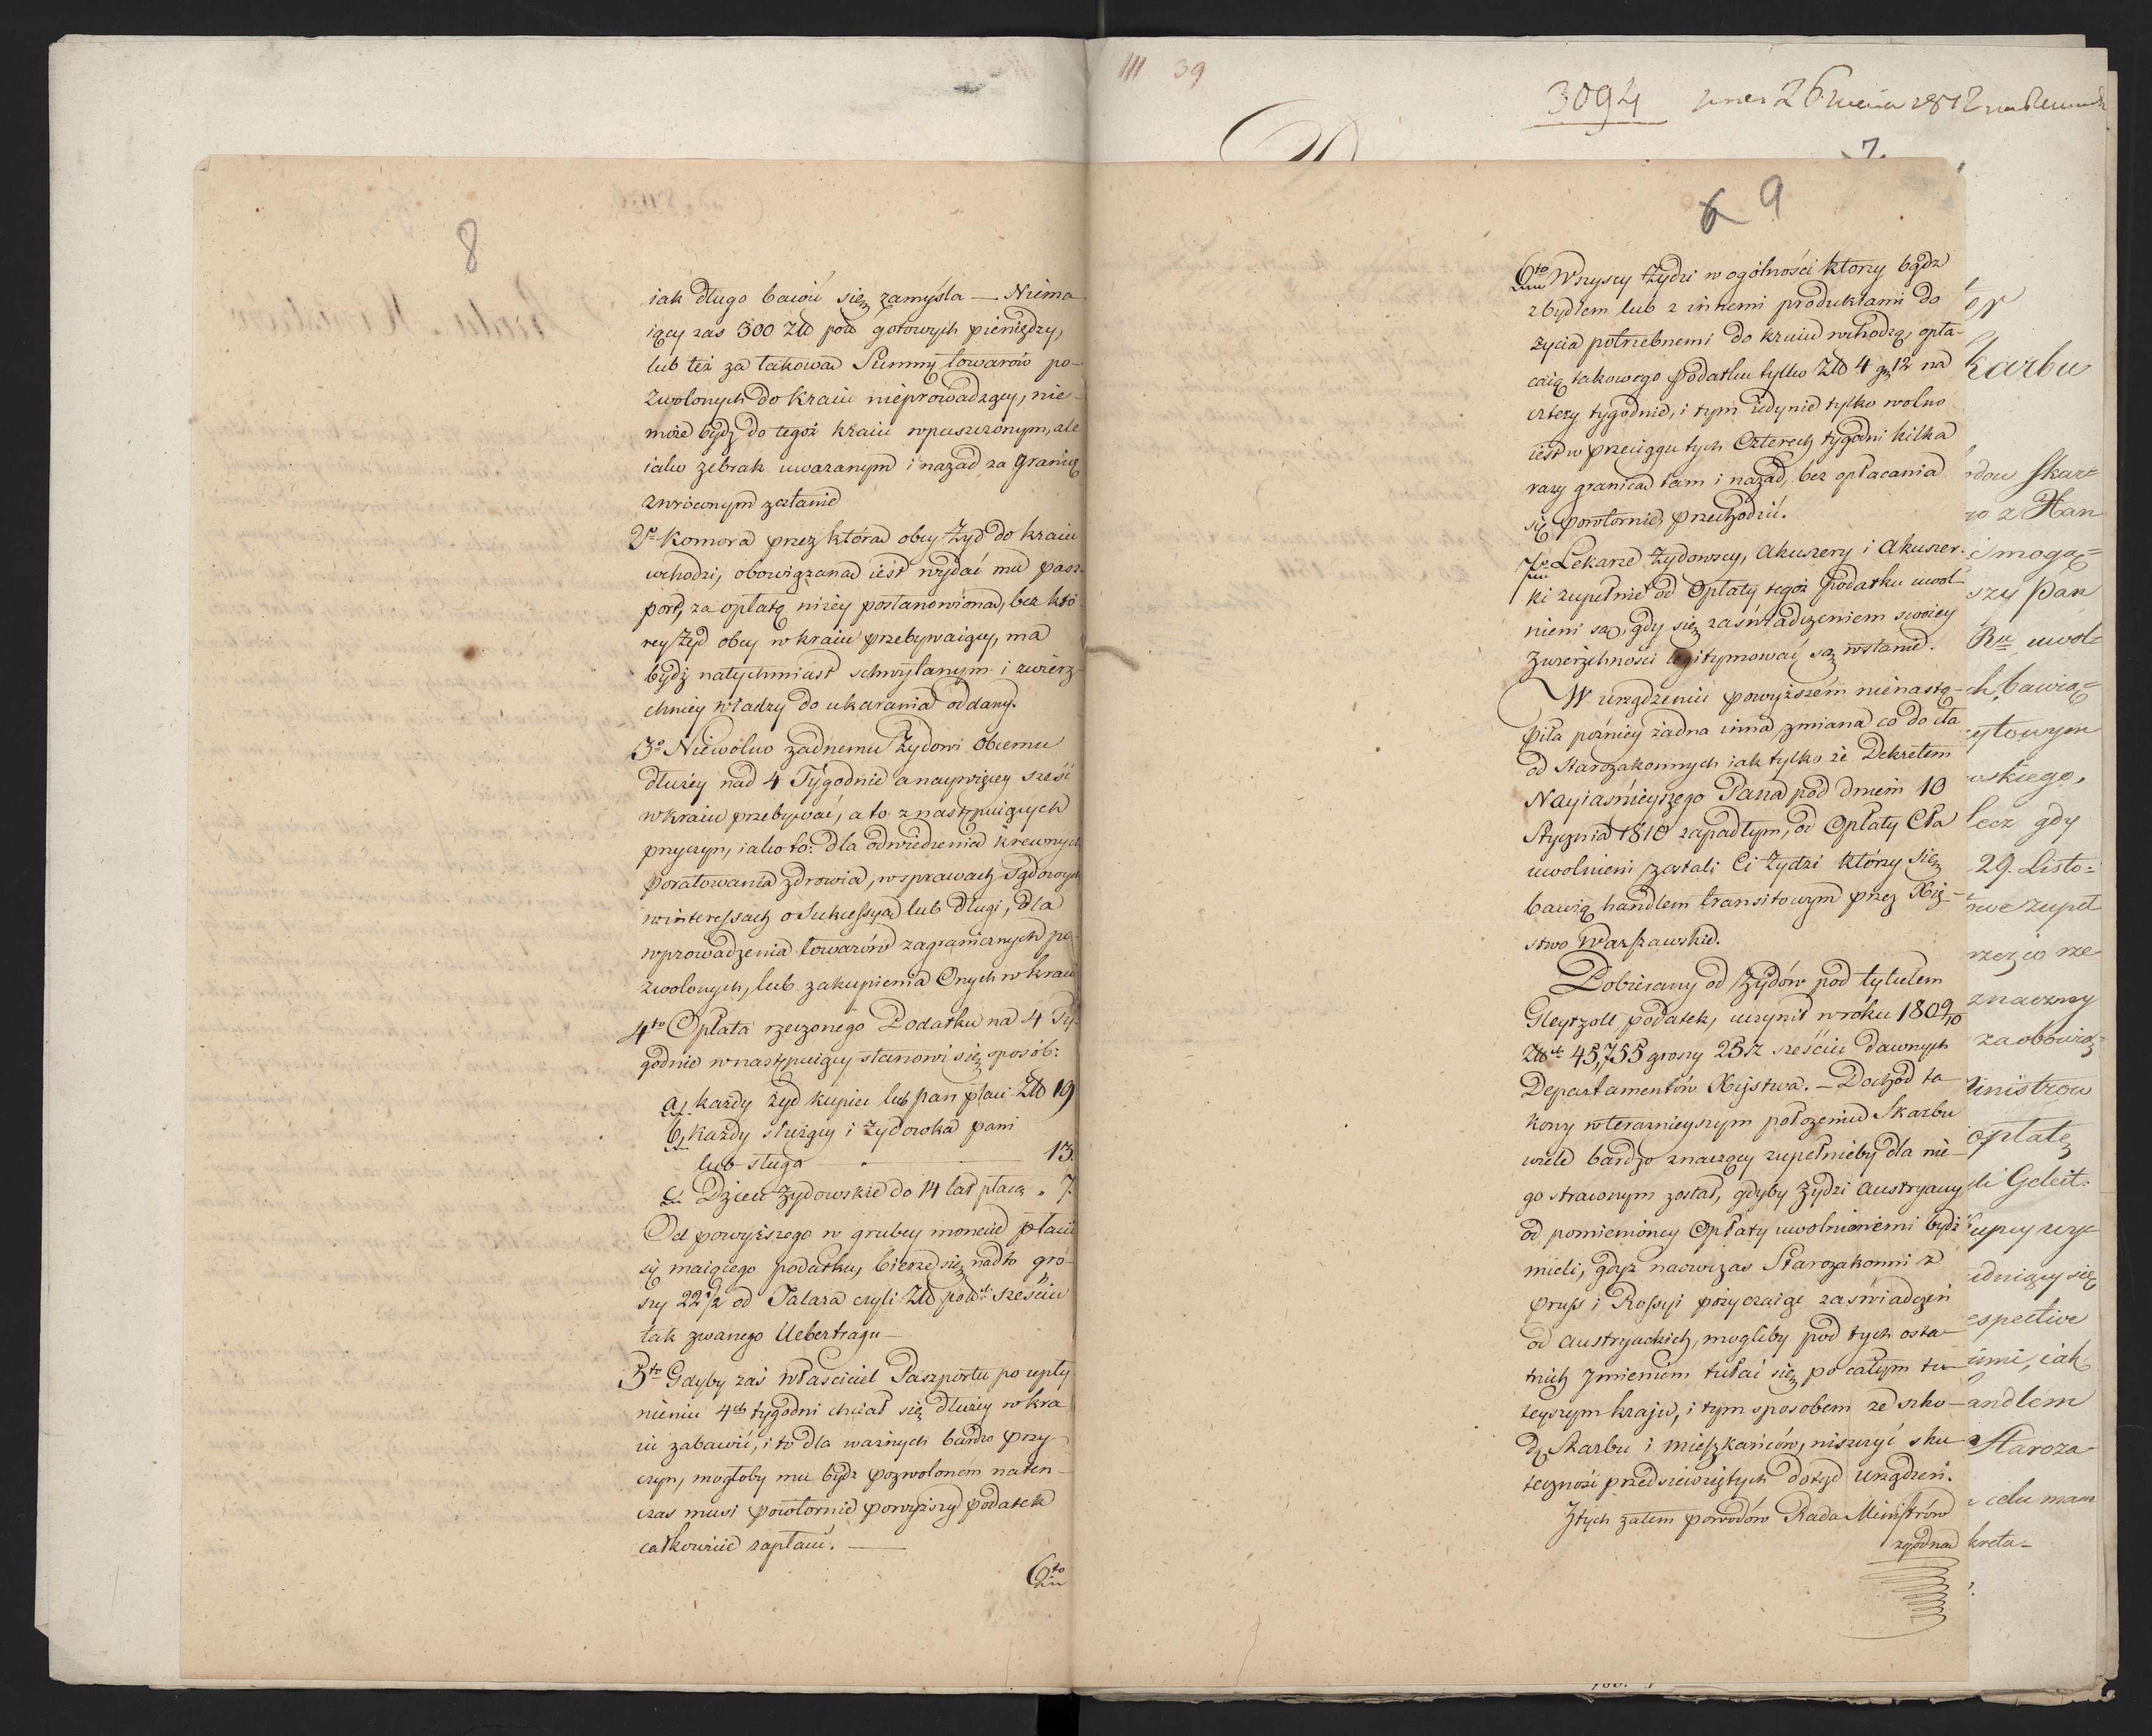 8
iak długo bawić się zamyśla — Niema
iący zas 300 Złł pols gotowych pieniędzy,
lub też za takowa Summę towarów po-
zwolonych do kraiu nieprowadzący, nie-
może bydz do tegoż kraiu wpuszczonym, ale
iako żebrak uwazanym i nazad za Granicę
zwróconym zostanie
2do Komora przez która obcy Żyd do kraiu
wchodzi, obowiązana iest wydać mu pasz-
port, za opłatą niżey postanowiona, bez któ-
rey Żyd obcy w kraiu przebywaiący, ma
bydź natychmiast schwytanym i zwierz-
chniey władzy do ukarania oddany.
3o Niewolno żadnemu Żydowi obcemu
dłużey nad 4 Tygodnie a naywięcey sześć
w kraiu przebywać, a to z następuiących
przyczyn, iako to: dla odwiedzenia krewnych
poratowania zdrowia, w sprawach Sądowych
w interessach o Sukcessya lub długi, dla
wprowadzenia towarów zagranicznych po-
zwolonych, lub zakupienia Onych w kraiu
4to Opłata rzeczonego Podatku na 4 Ty-
godnie w następuiący stanowi się sposób:
a, każdy Żyd kupiec lub pan płaci Złł 19
b, każdy służący i Żydowka pani
lub sługa — 13.
c, Dzieci żydowskie do 14 lat płacą „ 7.
Od powyższego w grubey monecie płacić
się maiącego podatku, bierze się nadto gro-
szy 22 1/2 od Talara czyli Złł pols: sześciu
tak zwanego Uebertragu —
5to Gdyby zaś Właściciel Paszportu po upły
nieniu 4ch tygodni chciał się dłużey w kra
iu zabawić, i to dla ważnych bardzo przy-
czyn, mogłoby mu bydz pozwolonem naten-
czas musi powtornie powyższy podatek
całkowicie zapłacić. —
6to
III 39
3094
7.
6 9
6to Wszyscy Żydzi w ogólności ktorzy bądz
z bydłem lub z innemi produktami do
życia potrzebnemi do kraiu wchodzą, opła-
caią takowego podatku tylko Złł 4 gr 12 na
cztery tygodnie, i tym iedynie tylko wolno
iest w przeciągu tych Czterech tygodni kilka
razy granica tam i nazad, bez opłacania
się powtornie, przechodzić.
7o Lekarze Żydowscy, Akuszery i Akuszer-
ki zupełnie od Opłaty tegoż podatku uwol-
nieni są, gdy się zaświadczeniem swoiey
Zwierzchności legitymować są wstanie.
W urządzeniu powyższém nienastą-
piła później żadna inna zmiana co do cła
od Starozakonnych iak tylko że Dekretem
Nayiaśnieyszego Pana pod dniem 10
Stycznia 1810 zapadłym, od Opłaty Cła
uwolnieni zostali Ci Żydzi którzy się
bawią handlem transitowym przez Xię-
stwo Warszawskie.
Pobierany od Żydów pod tytułem
Gleytzoll podatek, uczynił w roku 1809/10
Złł 45,755 groszy 25 z sześciu dawnych
Departamentów Xięstwa. — Dochód ta-
kowy w teraznieyszym położeniu Skarbu
wiele bardzo znaczący zupełnieby dla nie-
go straconym został, gdyby Żydzi Austryaccy
od pomienioney Opłaty uwolnionemi bydź
mieli, gdyż naowczas Starozakonni z
Pruss i Rossyi pożyczaiąc zaświadczeń
od Austryackich, mogliby pod tych osta-
tnich Jmieniem tułać się po całym tu-
teyszym kraju, i tym sposobem ze szko-
dą Skarbu i mieszkańców, niszczyć sku-
teczność przedsięwziętych dotąd urządzeń.
Z tych zatem powodów Rada Ministrów
zgodna
karbu
skar-
z Han
mogą-
szy Pan
uwol-
bawią-
wskiego,
lecz gdy
29. Listo-
zupeł
znaczny
za obowią-
inistrow
opłatę
Geleit-
respective
iak
andlem
Staroza
celu mam
kreta-